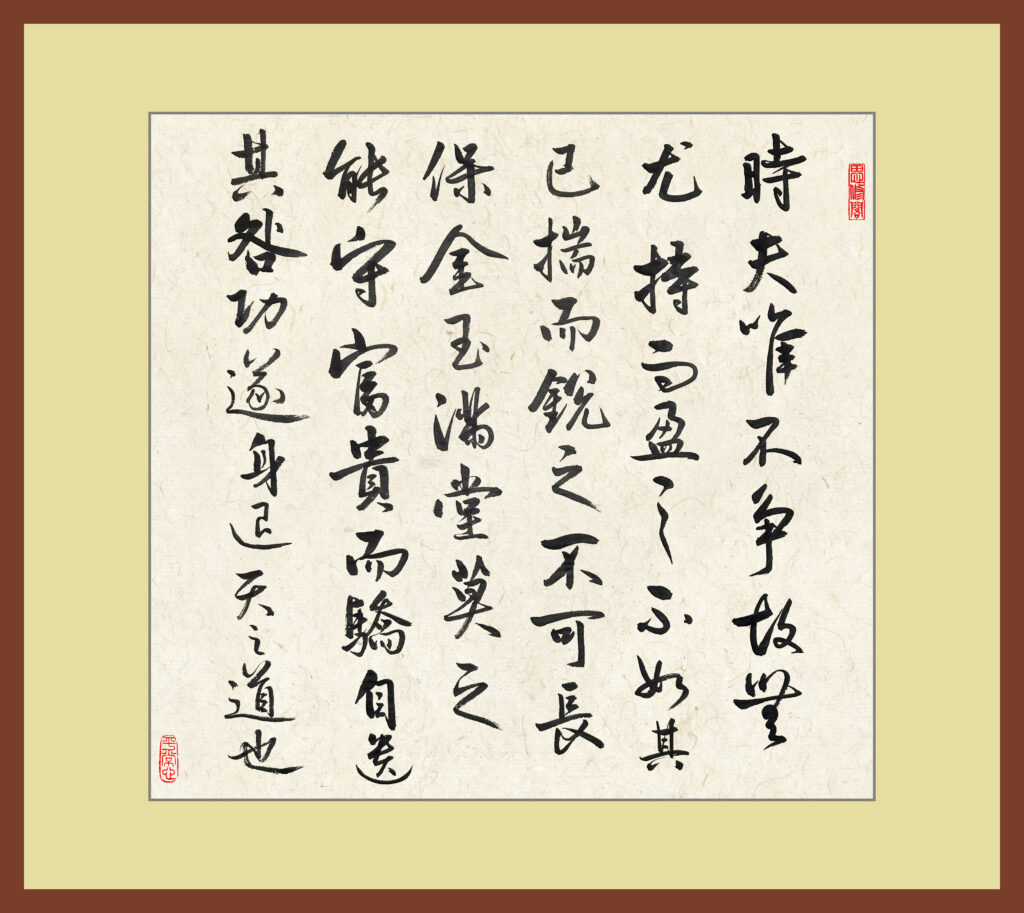 思修閣
時夫唯不争故無
尤持而盈之不如其
已揣而銳之不可長
保金玉滿堂莫之
能守富貴而驕自遺
其咎功遂身退天之道也
平常心